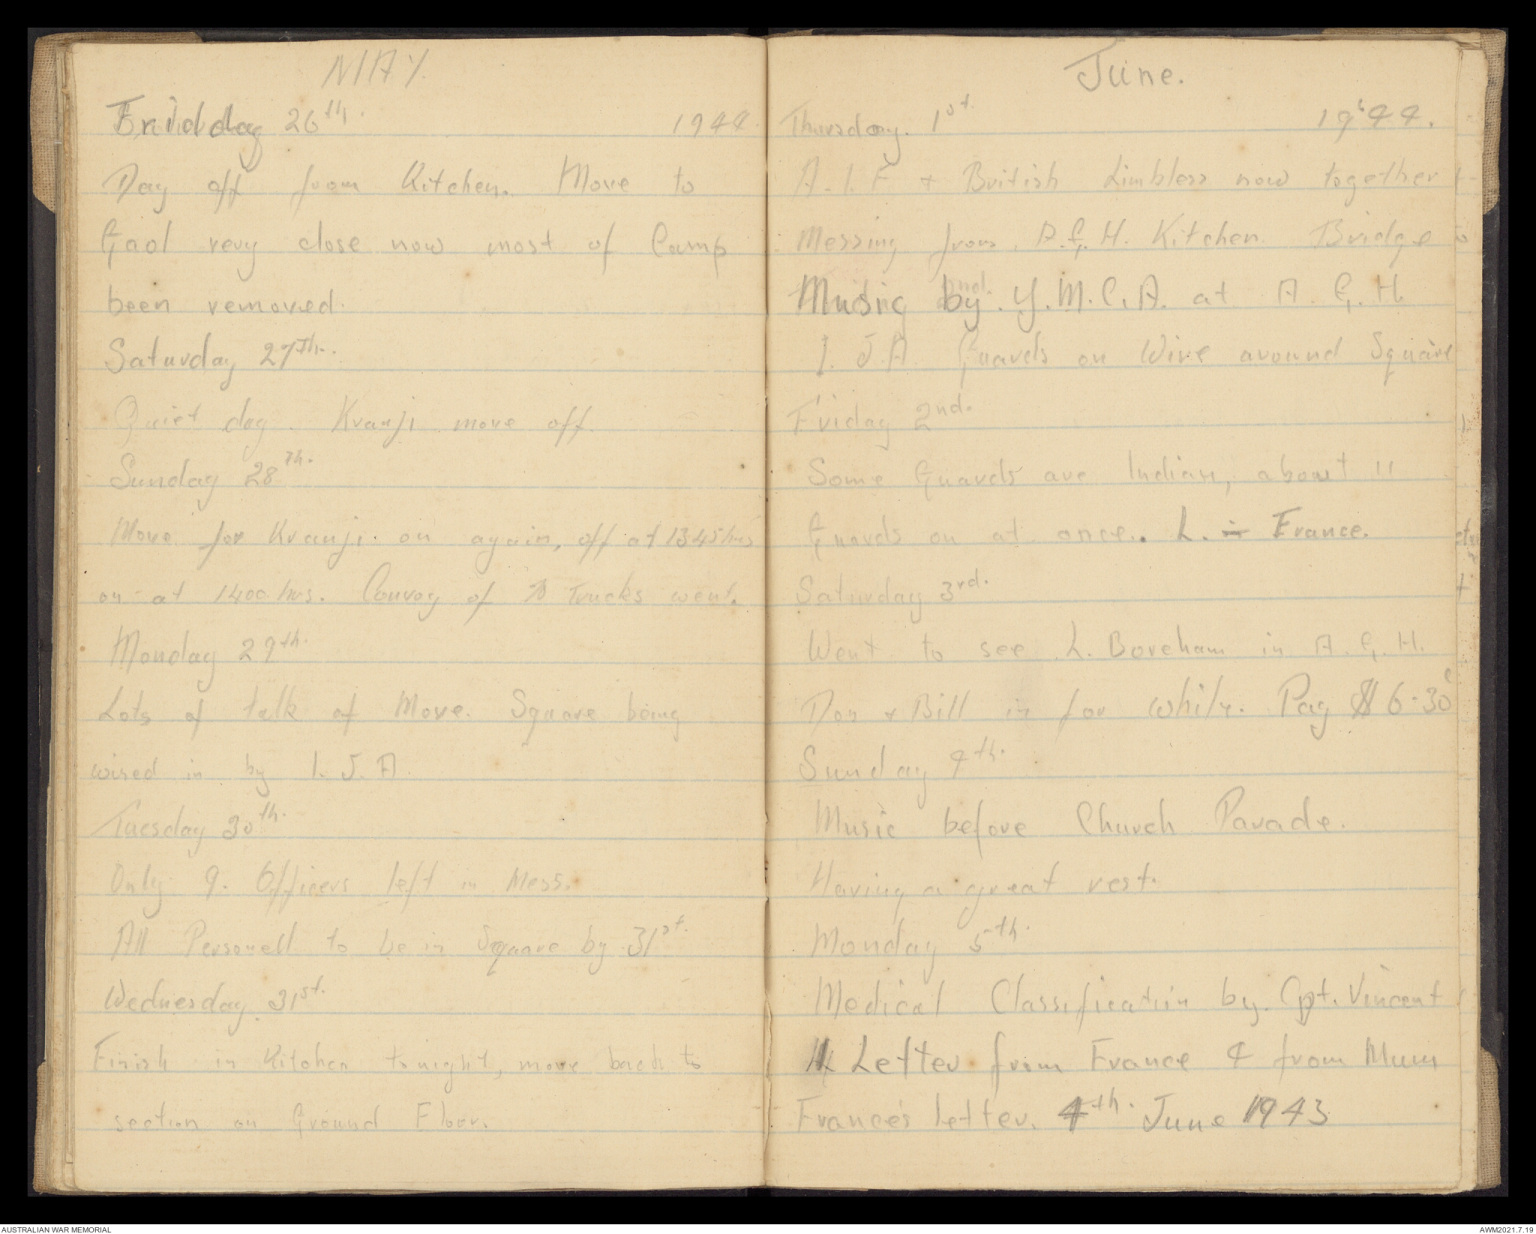 MAY.
Friday 26th. 1944.
Day off from Kitchen. Move to
Gaol very close now most of Camp
been removed.
Saturday 27th.
Quiet day. Kranji move off.
Sunday 28th.
Move for Kranji. on again, off at 1345 hrs
on at 1400 hrs. Convoy of Trucks went.
Monday 29th.
Lots of talk of Move. Square being
wired in by I. J. A.
Tuesday 30th.
Only 9. Officers left in Mess.
All Personell to be in Square by 31st.
Wednesday 31st.
Finish in Kitchen tonight, move back to
section on Ground Floor.
June.
Thursday. 1st. 1944.
A. I. F + British Limbless now together
Messing from A. G. H. Kitchen. Bridge
Music by. Y.M.C.A. at A. G. H.
I. J. A Guards on Wire around Square
Friday 2nd.
Some Guards are Indian, about 11
Guards on at once. L. France.
Saturday 3rd.
Went to see L. Boreham in A. G. H.
Don + Bill in for while. Pay $ 6-30
Sunday 4th.
Music before Church Parade.
Having a great rest.
Monday 5th.
Medical Classification by. Cpt. Vincent
Letter from France & from Mum
France's Letter. 4th. June 1943
AUSTRALIAN WAR MEMORIAL
AWM2021.7.19